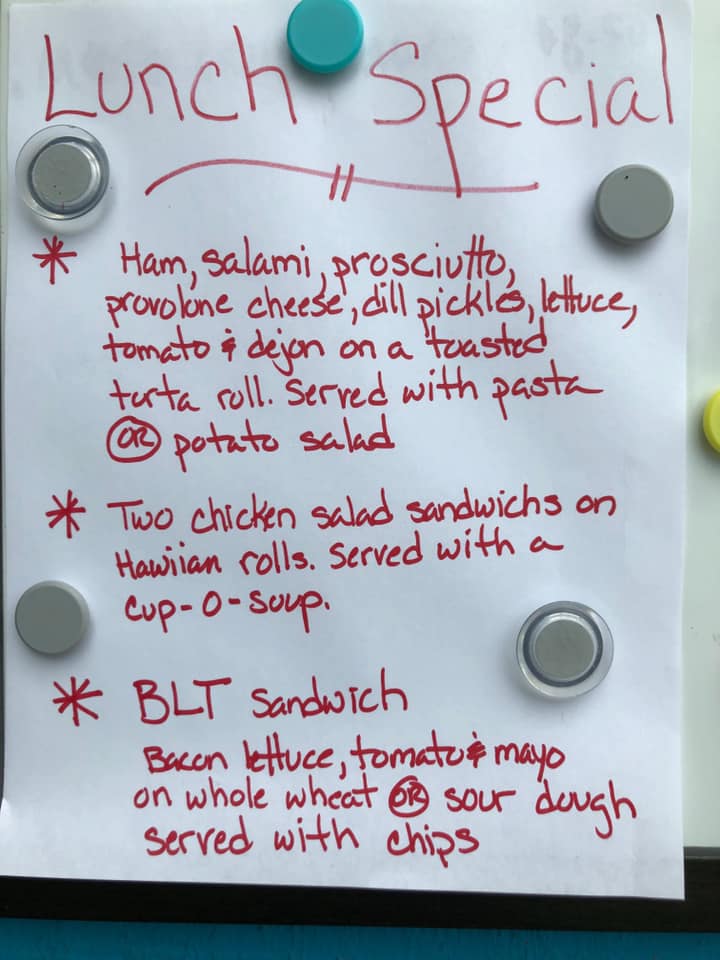 Lunch Special
* Ham, salami, prosciutto,
provolone cheese, dill pickles, lettuce,
tomato & dejon on a toasted
torta roll. Served with pasta
OR potato salad
* Two chicken salad sandwichs on
Hawiian rolls. Served with a
cup-o-soup.
* BLT sandwich
Bacon lettuce, tomato & mayo
on whole wheat OR sour dough
served with chips